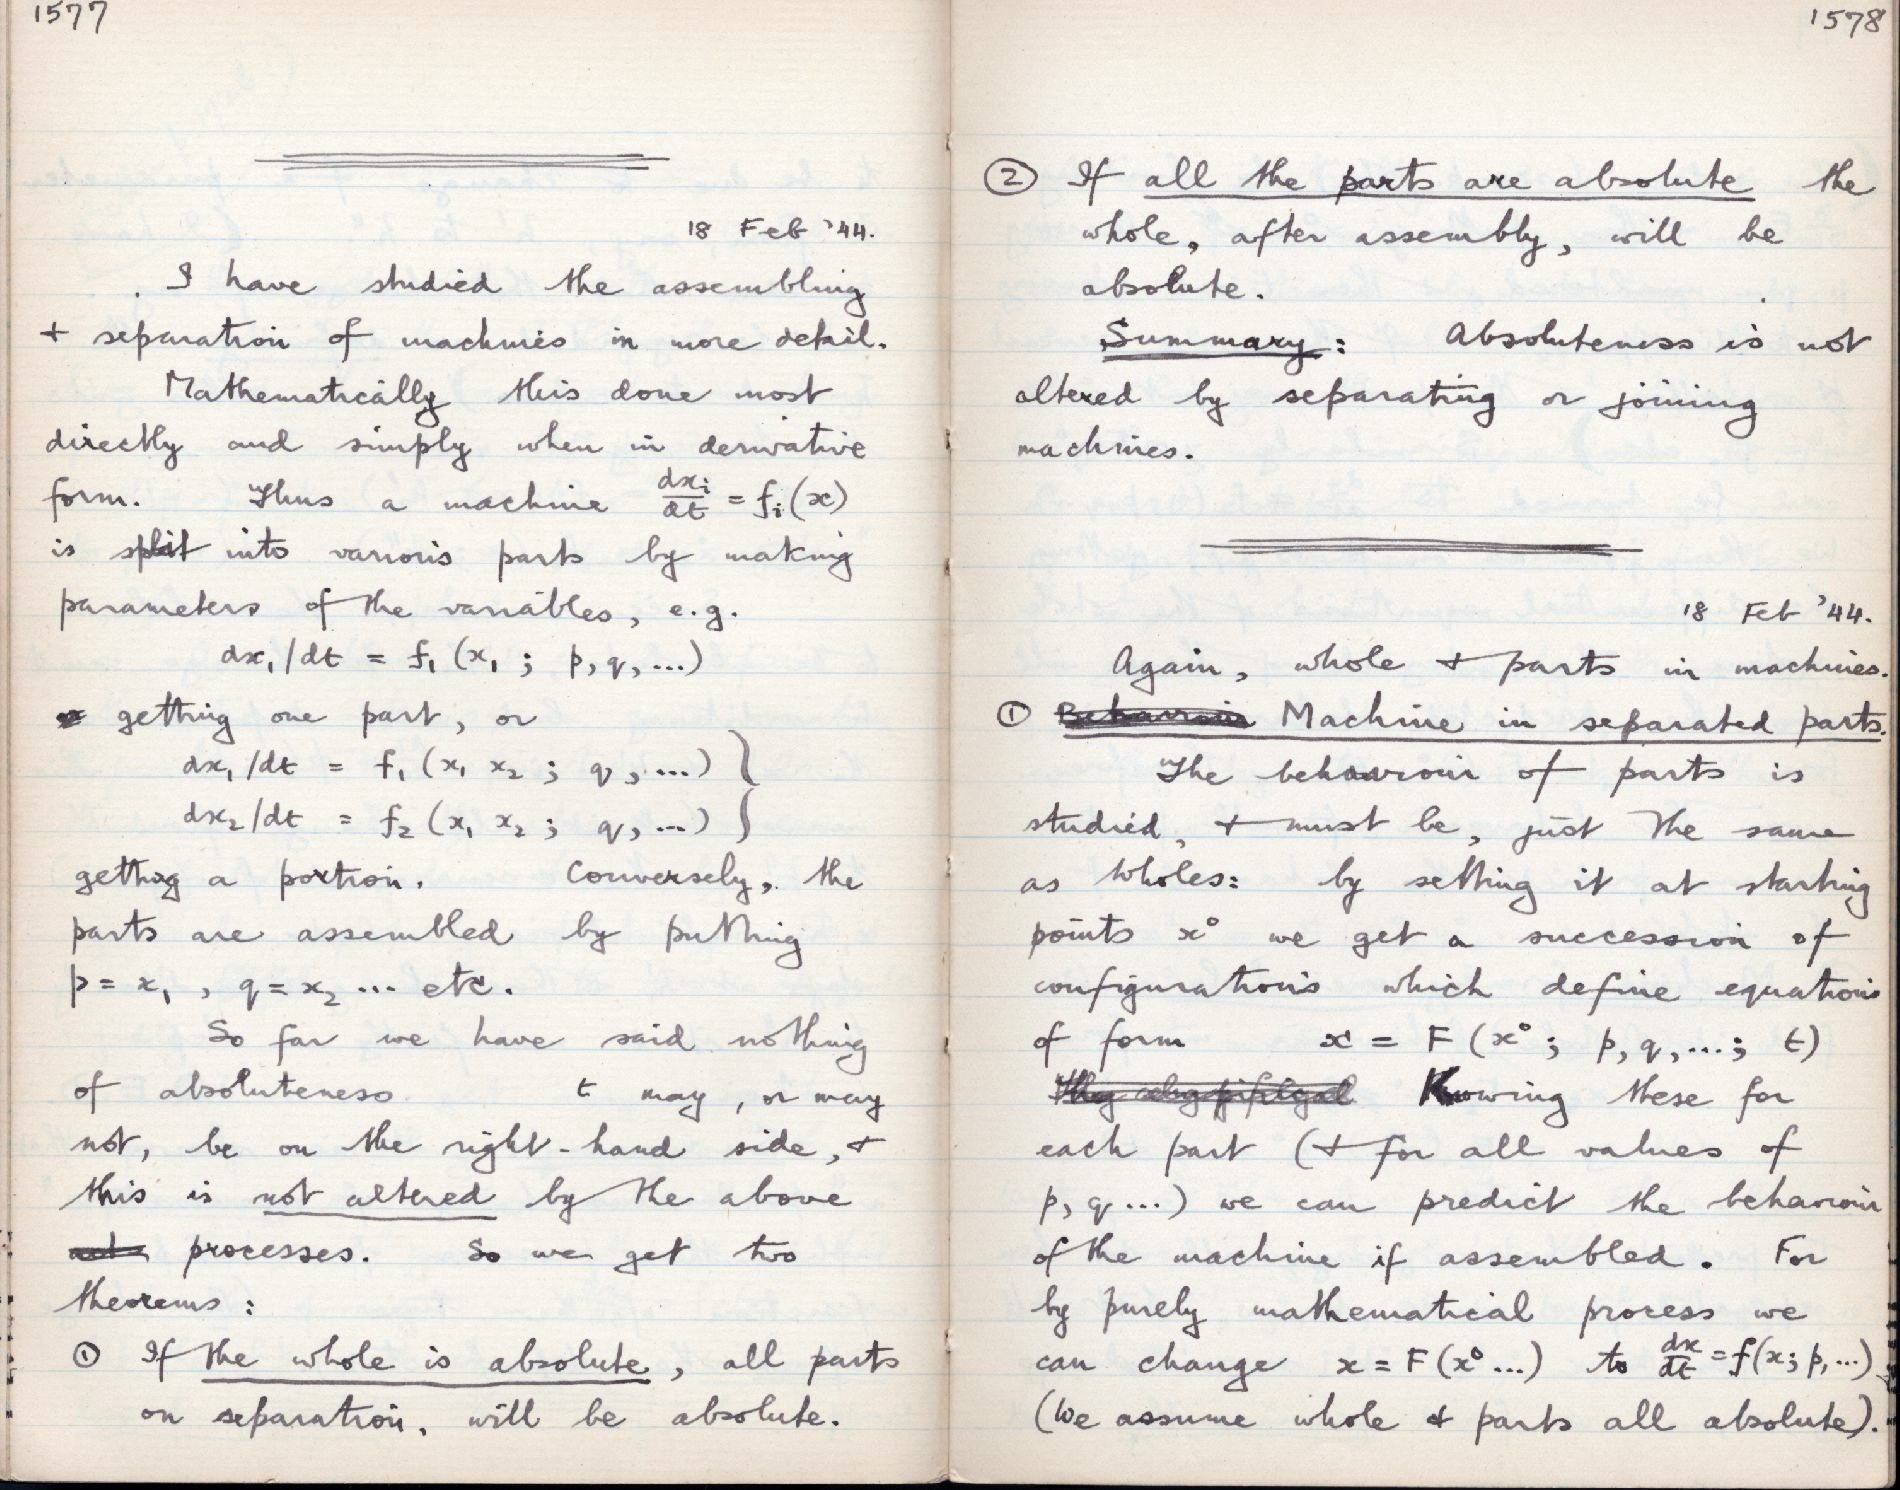 1577
18 Feb '44.
I have studied the assembling
+ separation of machines in more detail.
Mathematically this done most
directly and simply when in derivative
form. Thus a machine dxi/dt = fi(x)
is split into various parts by making
parameters of the variables, e.g.
dx₁/dt = f₁ (x₁ ; p, q, ...)
getting one part, or
dx₁/dt = f₁ (x₁ x₂ ; q, ...) }
dx₂/dt = f₂ (x₁ x₂ ; q, ...) }
getting a portion. Conversely, the
parts are assembled by putting
p = x₁ , q = x₂ ... etc.
So far we have said nothing
of absoluteness t may, or may
not, be on the right-hand side, +
this is not altered by the above
processes. So we get two
theorems :
① If the whole is absolute, all parts
on separation, will be absolute.
1578
② If all the parts are absolute the
whole, after assembly, will be
absolute.
Summary: Absoluteness is not
altered by separating or joining
machines.
18 Feb '44.
Again, whole + parts in machines.
① Behaviour Machine in separated parts.
The behaviour of parts is
studied, + must be, just the same
as wholes: by setting it at starting
points x° we get a succession of
configurations which define equations
of form x = F (x° ; p, q, ...; t)
Knowing these for
each part (+ for all values of
p, q ...) we can predict the behaviour
of the machine if assembled. For
by purely mathematical process we
can change x = F (x° ...) to dx/dt = f(x; p, ...)
(We assume whole + parts all absolute).